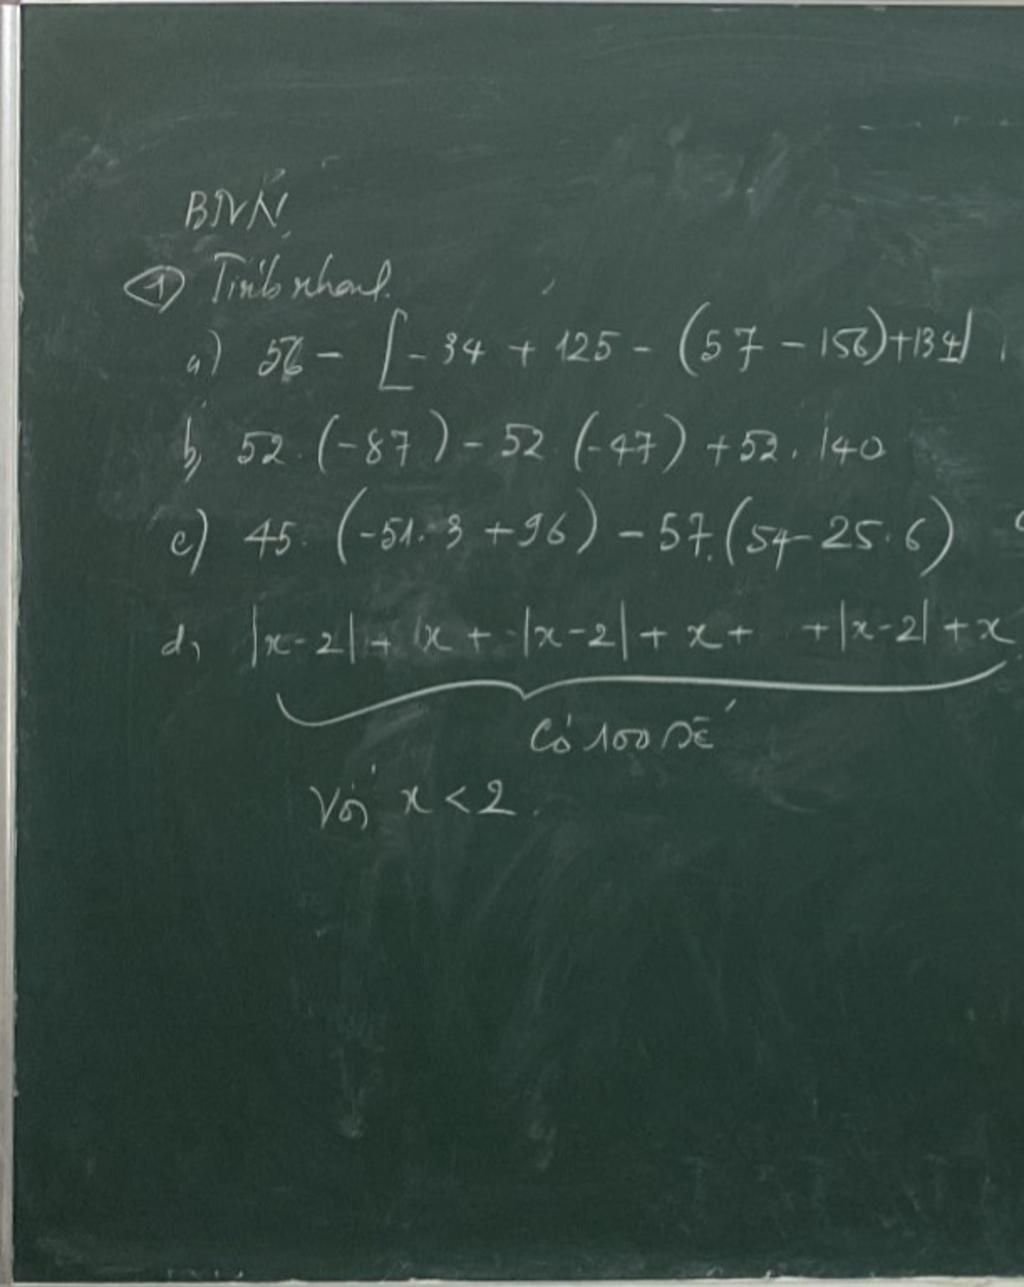 BTVN
① Tính nhanh.
a) 56 - [-34 + 125 - (57 - 156) + 134]
b, 52. (-87) - 52 (-47) + 52. 140
c) 45. (-51. 3 + 96) - 57. (54 - 25. 6)
d, |x-2| + x + |x-2| + x + + |x-2| + x
Có 100
Với x < 2.